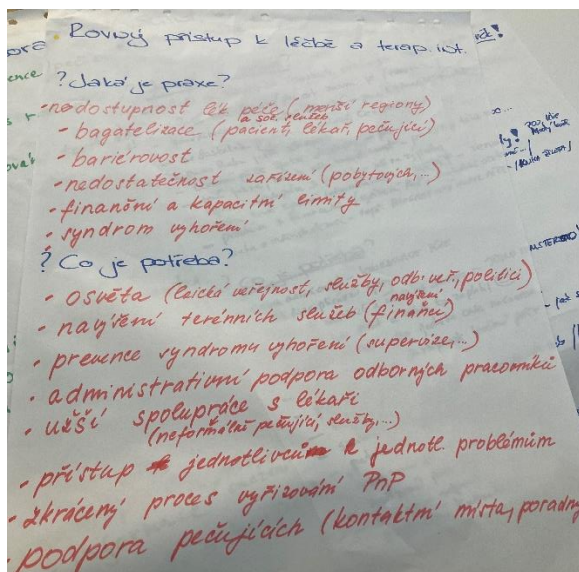 Rovný přístup k léčbě a terap. int.
? Jaká je praxe?
- nedostupnost lék péče (menší regiony)
a soc. služeb
- bagatelizace (pacient, lékař, pečující)
- bariérovost
- nedostatečnost zařízení (pobytových,...)
- finanční a kapacitní limity
- syndrom vyhoření
? Co je potřeba?
- osvěta (laická veřejnost, služby, odb. veř., politici)
navýšení
- navýšení terénních služeb (financí)
- prevence syndromu vyhoření (supervize,...)
- administrativní podpora odborných pracovníků
- užší spolupráce s lékaři
(neformálně pečující, služby,...)
- přístup jednotlivců k jednotl. problémům
- zkrácený proces vyřizování PnP
- podpora pečujících (kontaktní místa, poradny